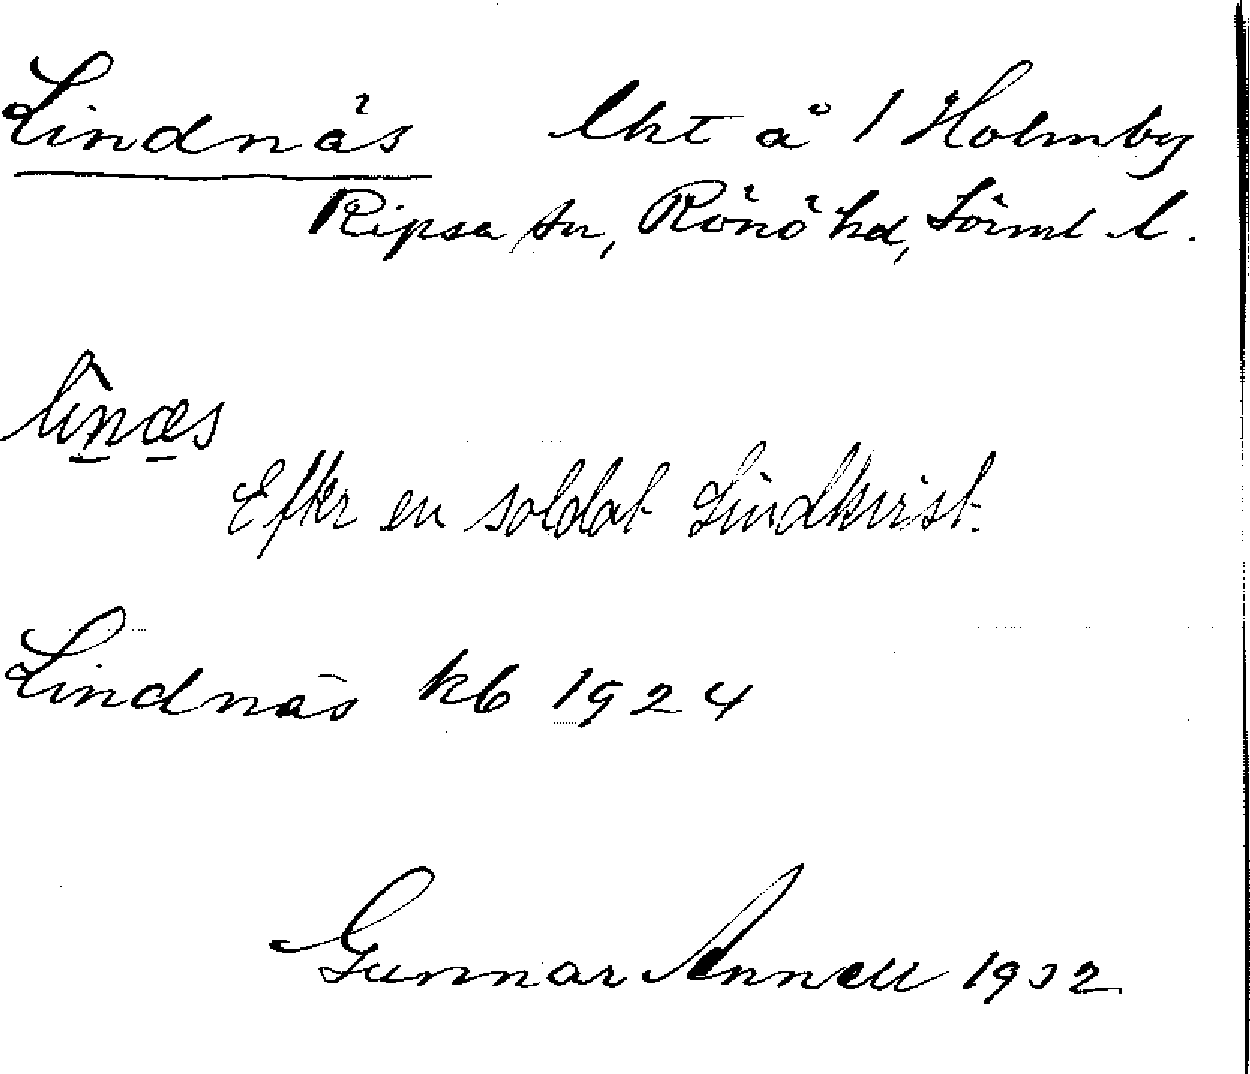 Lindnäs lht å 1 Holmby
Ripsa sn, Rönö hd, Sörml l.
li̇̂næs
Efter en soldat Lindkvist.
Lindnäs kb 1924
Gunnar Annell 1932